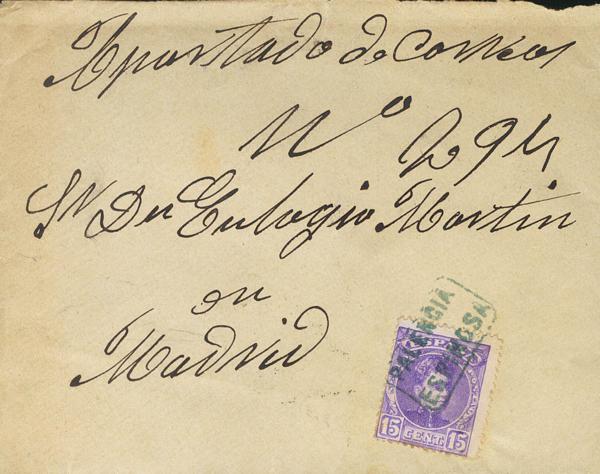 Apartado de Correos
Nº 294
Sr Dn Eulogio Martin
en
Madrid
PALENCIA
ESPINOSA
ESPAÑA
15 CENT. 15